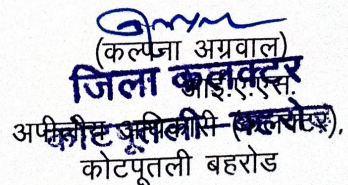 (कल्पना अग्रवाल)
जिला कलक्टर
आई.ए.एस.
अपीलीय अधिकारी (कलक्टर),
कोटपूतली बहरोड
कोटपूतली बहरोड